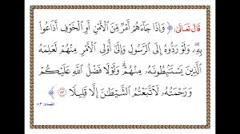 قال تعالى: ﴿ وَإِذَا جَاءَهُمْ أَمْرٌ مِّنَ الْأَمْنِ أَوِ الْخَوْفِ أَذَاعُوا
بِهِ وَلَوْ رَدُّوهُ إِلَى الرَّسُولِ وَإِلَىٰ أُولِي الْأَمْرِ مِنْهُمْ لَعَلِمَهُ
الَّذِينَ يَسْتَنبِطُونَهُ مِنْهُمْ وَلَوْلَا فَضْلُ اللَّهِ عَلَيْكُمْ
وَرَحْمَتُهُ لَاتَّبَعْتُمُ الشَّيْطَانَ إِلَّا قَلِيلًا ﴾